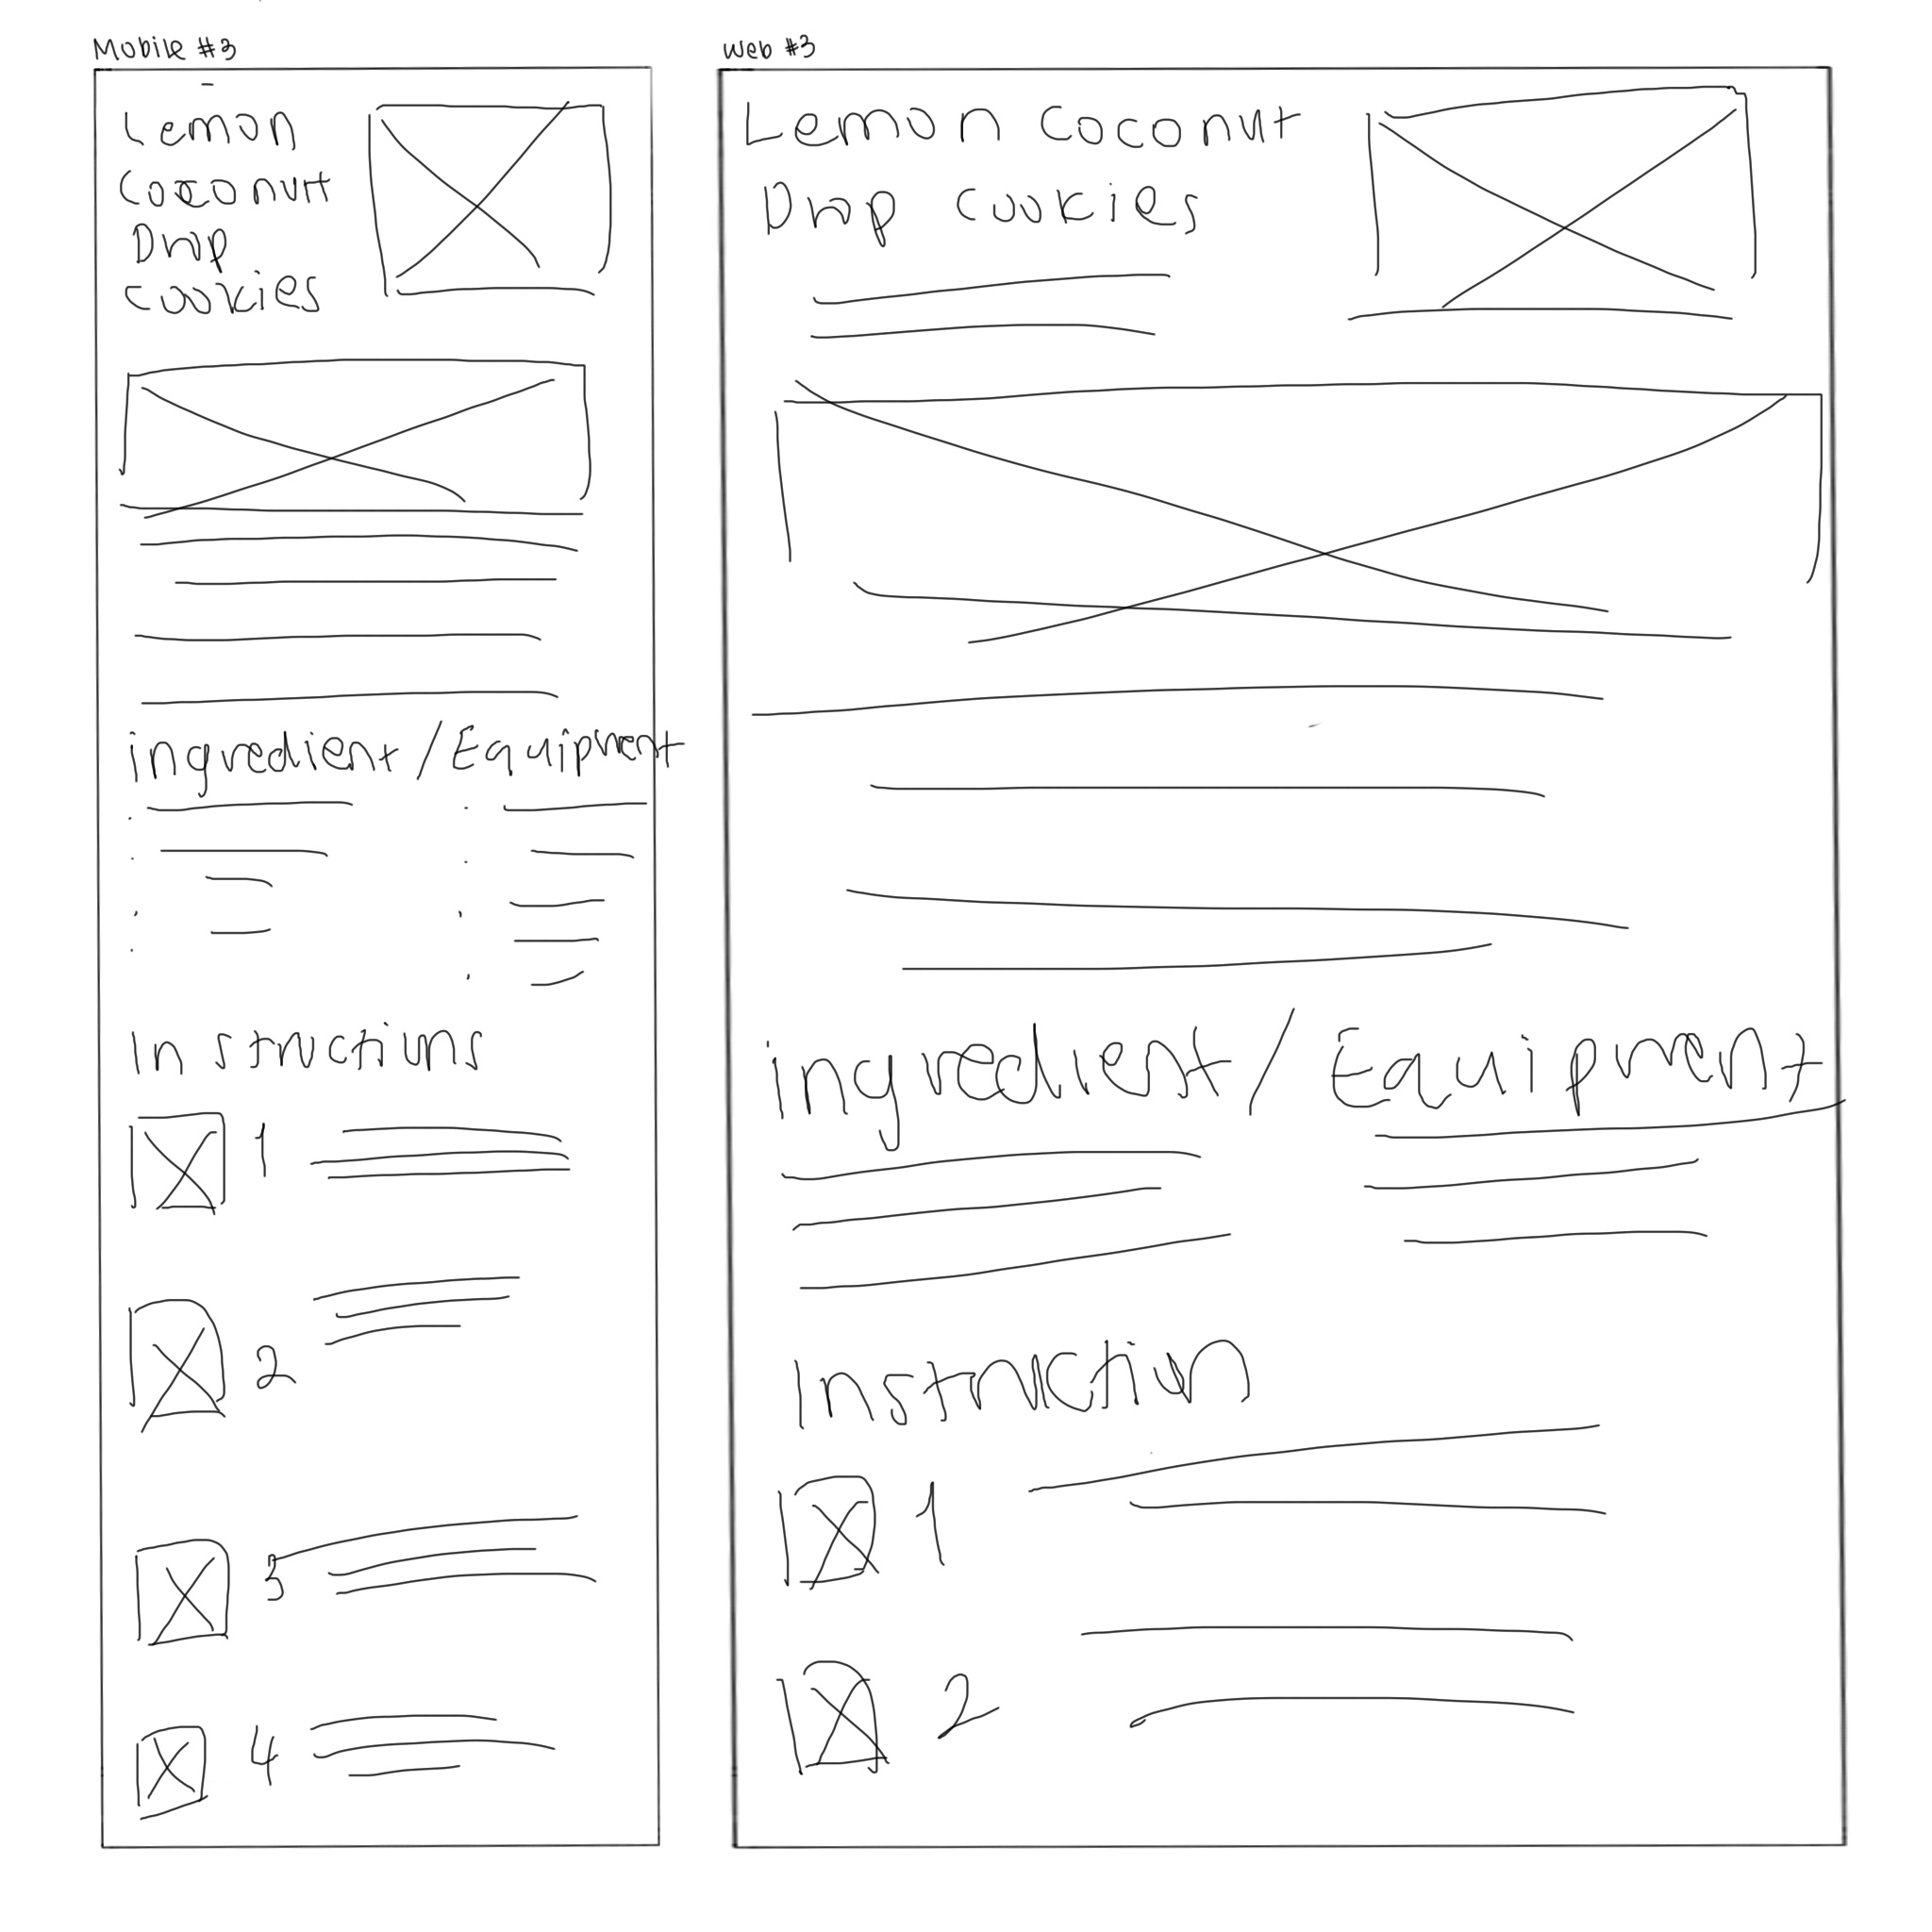 Mobile #3
Lemon
Coconut
Drop
Cookies
ingredient/Equipment
Instructions
1
2
3
4
Web #3
Lemon Coconut
Drop Cookies
ingredient/Equipment
Instruction
1
2